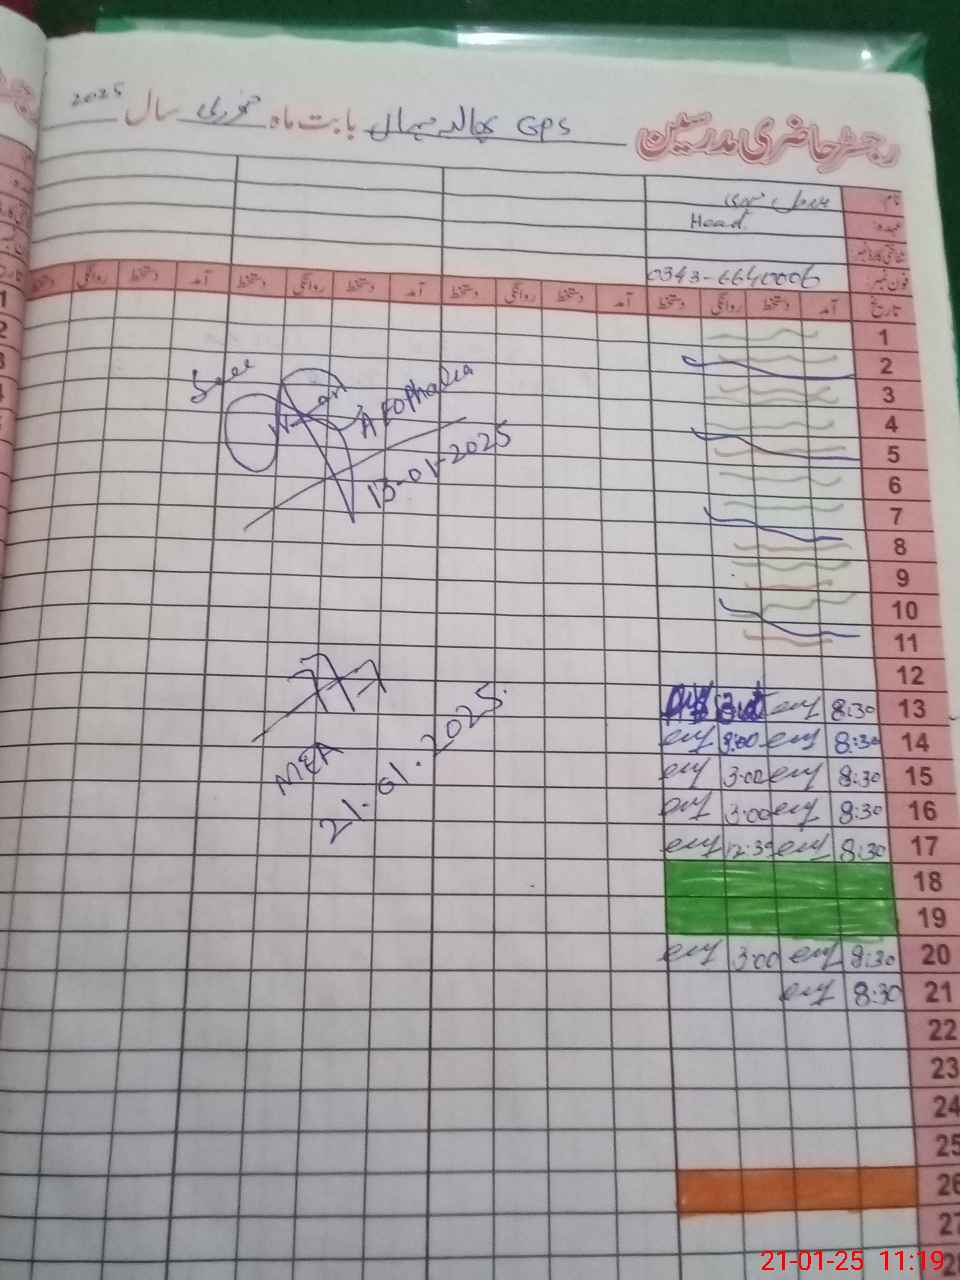 رجسٹر حاضری مدرسین GPS بابت ماہ جنوری سال 2025
نام
عہدہ Head
شناختی کارڈ نمبر
فون نمبر 0343-6640006
تاریخ آمد دستخط روانگی دستخط آمد دستخط روانگی دستخط آمد دستخط روانگی دستخط آمد دستخط روانگی دستخط
1
2
3
4
5
6
7
8
9
10
11
12
13 8:30
14 8:30 3:00
15 8:30 3:00
16 8:30 3:00
17 8:30 12:35
18
19
20 8:30 3:00
21 8:30
22
23
24
25
26
27
28
Seen
13-01-2025
MEA
21.01.2025.
21-01-25 11:19